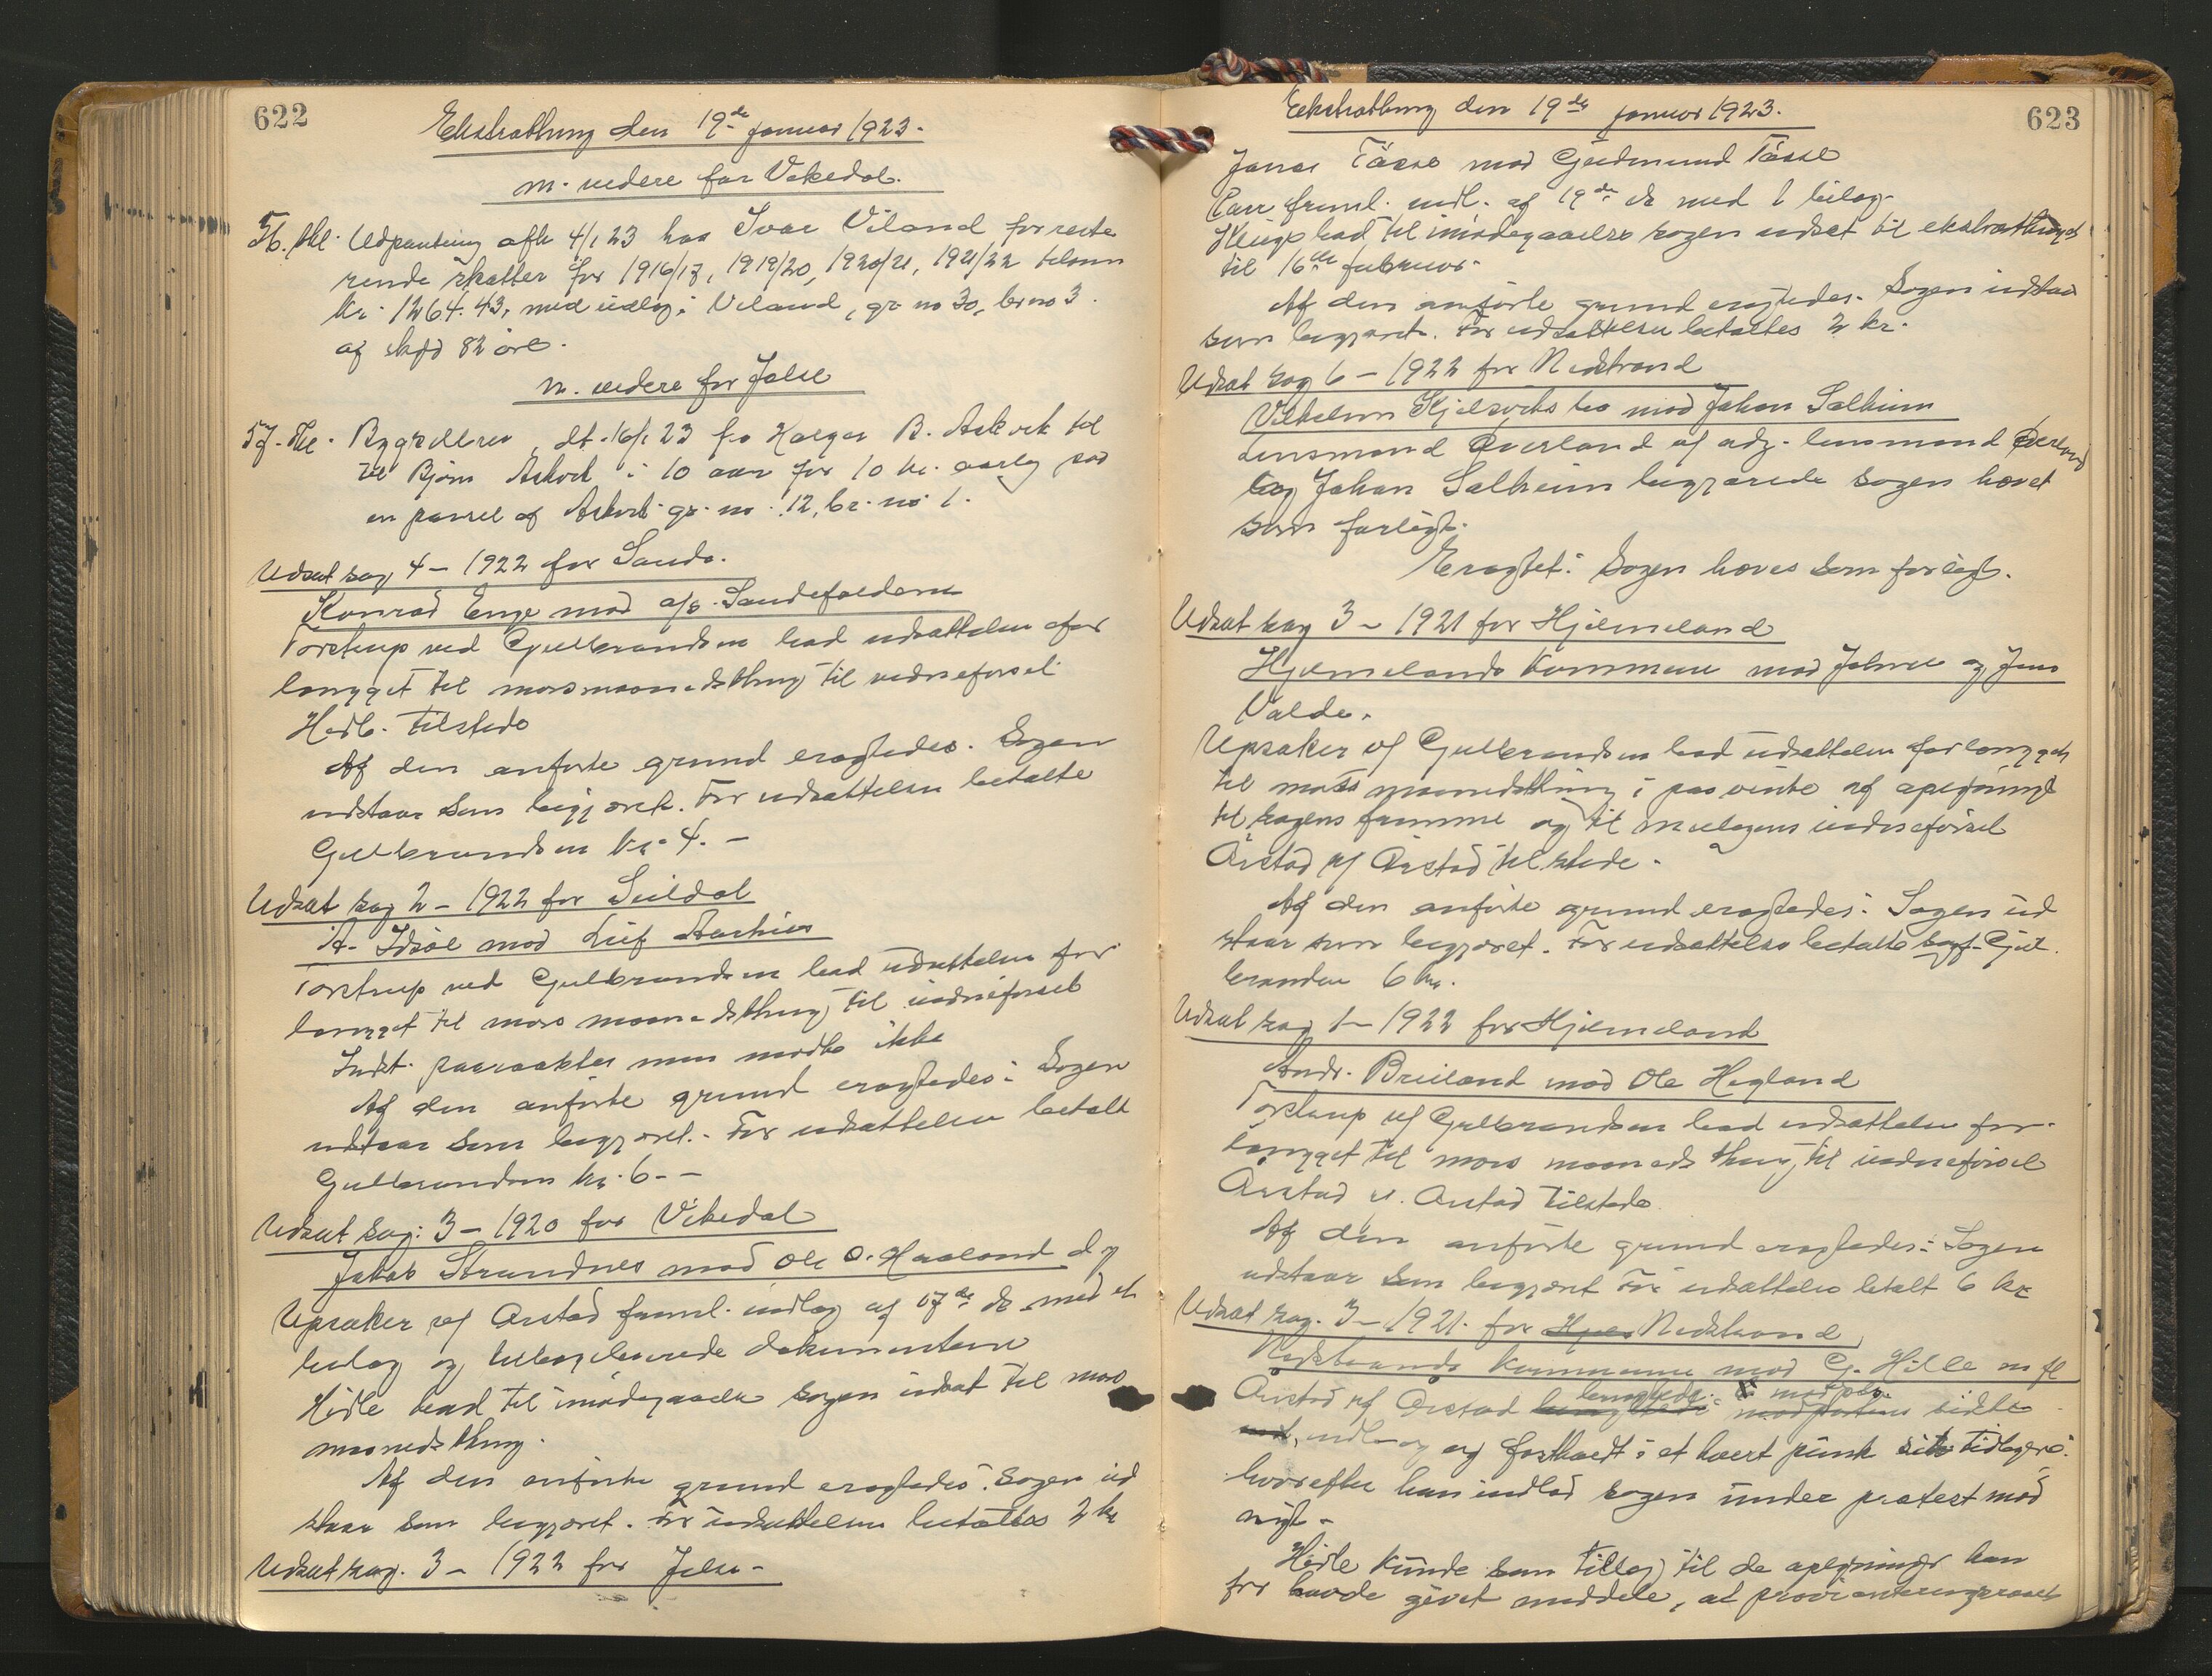 622
Ekstrathing den 19de januar 1923.
m. videre for Vikedal.
56. thl. Udpantning afh 4/1 23 hos Ivar Viland for reste
rende skatter for 1916/17, 1919/20, 1920/21, 1921/22 tilsam
kr. 1264.43, med udlæg i Viland, gr no 30, br no 3.
af skyld 82 øre.
m. videre for Jelse
57. thl. Bygselbrev, dt. 16/1 23 fra Holger B. Askvik til
til Bjørn Askvik i 10 aar for 10 kr. aarlig paa
en parsel af Askvik gr. no. 12, br. no 1.
Udsat sag 4 – 1922 for Sande.
Konrad Enge mod a/s. Sandefolderne
Torstrup ved Gulbrandsen bad udsættelse for
langget til mars maanedsthing til vidneførsel
Hidle tilstede
Af den anførte grund eragtedes. Sagen
udstaar som begjæret. For udsættelsen betalte
Gulbrandsen kr. 4. –
Udsat sag 2 – 1922 for Suldal
A. Idsøe mod Leif Aarhus
Torstrup ved Gulbrandsen bad udsættelse for
langget til mars maanedsthing til vidneførsel
Indst. paaraabtes men mødte ikke
Af den anførte grund eragtedes: Sagen
udstaar som begjæret. – For udsættelsen betalt
Gulbrandsen kr. 6. –
Udsat sag: 3 – 1920 for Vikedal
Jakob Strandnes mod Ole O. Haaland d y
Upsaker v/ Arstad freml. indlæg af 17de ds med et
bilag og tilbageleverede dokumenterne
Hidle bad til imødegaaelse sagen udsat til mars
maanedsthing.
Af den anførte grund eragtedes: Sagen ud
staar som begjæret. For udsættelsen betaltes 2 kr
Udsat sag. 3 – 1922 for Jelse –
623
Ekstrathing den 19de januar 1923.
Jonas Tåsse mod Gudmund Tåsse
freml. indl. af 19de ds med 1 bilag.
bad til imødegaaelse sagen udsat til ekstrathinget
til 16de februar.
Af den anførte grund eragtedes. Sagen udstaar
som begjæret. For udsættelsen betaltes 2 kr.
Udsat sag 6 – 1922 for Nedstrand
Vilhelm Kjelsviks bo mod Johan Salheim
Lensmand Øverland af adj. lensmand Øverland
og Johan Salheim begjærede sagen hævet
som forligt.
Eragtet: Sagen hæves som forligt.
Udsat sag 3 – 1921 for Hjelmeland
Hjelmelands kommune mod Johan og Jens
Valde.
Upsaker v/ Gulbrandsen bad udsættelse forlangget
til mars maanedsthing i paavente af oplysninger
til sagens fremme og til muligens vidneførsel
Årstad v/ Årstad tilstede.
Af den anførte grund eragtedes: Sagen ud
staar som begjæret. For udsættelse betalte sagf. Gul
brandsen 6 kr.
Udsat sag 1 – 1922 for Hjelmeland
Andr. Breiland mod Ole Hegland
Torstrup v/ Gulbrandsen bad udsættelse for-
langget til mars maaneds thing til vidneførsel
Årstad v. Årstad tilstede
Af den anførte grund eragtedes: Sagen
udstaar som begjæret For udsættelse betalt 6 kr
Udsat sag. 3 – 1921. for Nedstrand
Nedstrands kommune mod G. Hille m fl
Årstad v/ Årstad sidste
indlæg og fastholdt i et hvert punkt sit tidligere.
hvorefter han indlod sagen under protest mod
nyt –
Hidle kunde som tillæg til de oplysninger han
før havde givet meddele, at provianteringsraadet